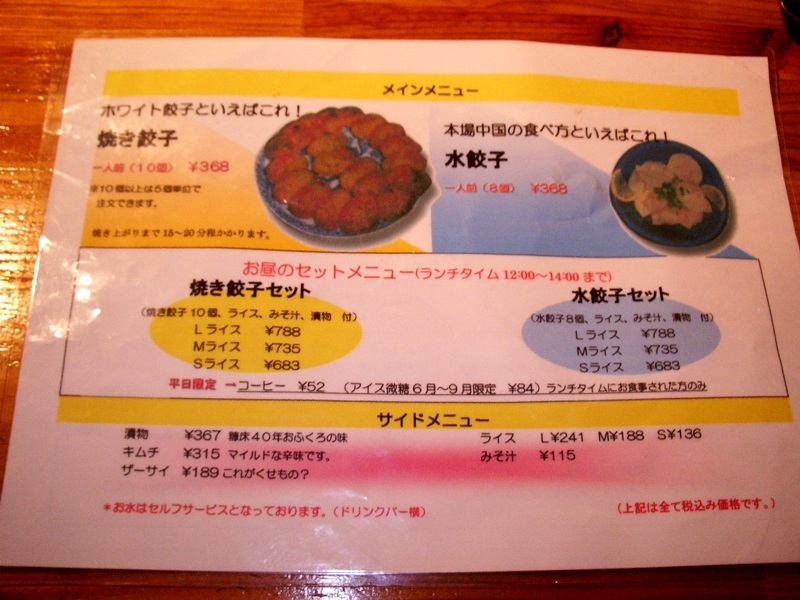 メインメニュー
ホワイト餃子といえばこれ！
焼き餃子
一人前（１０個） ¥368
※１０個以上は５個単位で
注文できます。
焼き上がりまで15～20分程かかります。
本場中国の食べ方といえばこれ！
水餃子
一人前（８個） ¥368
お昼のセットメニュー(ランチタイム 12:00～14:00 まで)
焼き餃子セット
(焼き餃子１０個、ライス、みそ汁、漬物 付)
Ｌライス ¥788
Ｍライス ¥735
Ｓライス ¥683
水餃子セット
(水餃子８個、ライス、みそ汁、漬物 付)
Ｌライス ¥788
Ｍライス ¥735
Ｓライス ¥683
平日限定 →コーヒー ¥52 （アイス微糖６月～９月限定 ¥84）ランチタイムにお食事された方のみ
サイドメニュー
漬物 ¥367 糠床４０年おふくろの味
キムチ ¥315 マイルドな辛味です。
ザーサイ ¥189 これがくせもの？
ライス L¥241 M¥188 S¥136
みそ汁 ¥115
＊お水はセルフサービスとなっております。（ドリンクバー横）
（上記は全て税込み価格です。）